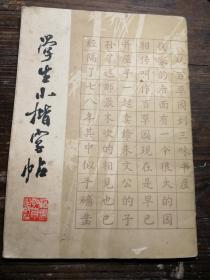 学生小楷字帖
从百草园到三味书屋
我家的后面有一个很大的园
相传叫作百草园现在是早已
并屋子一起卖给朱文公的子
孙了连那最末次的相见也已
经隔了七八年其中似乎确凿